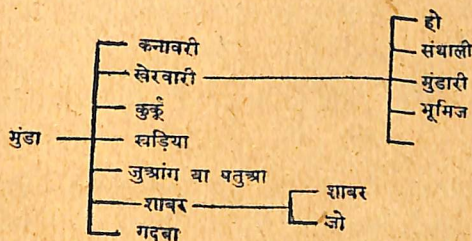 मुंडा
कनावरी
खेरवारी
कुर्कू
खड़िया
जुआंग या पतुआ
शाबर
गदबा
हो
संथाली
मुंडारी
भूमिज
शाबर